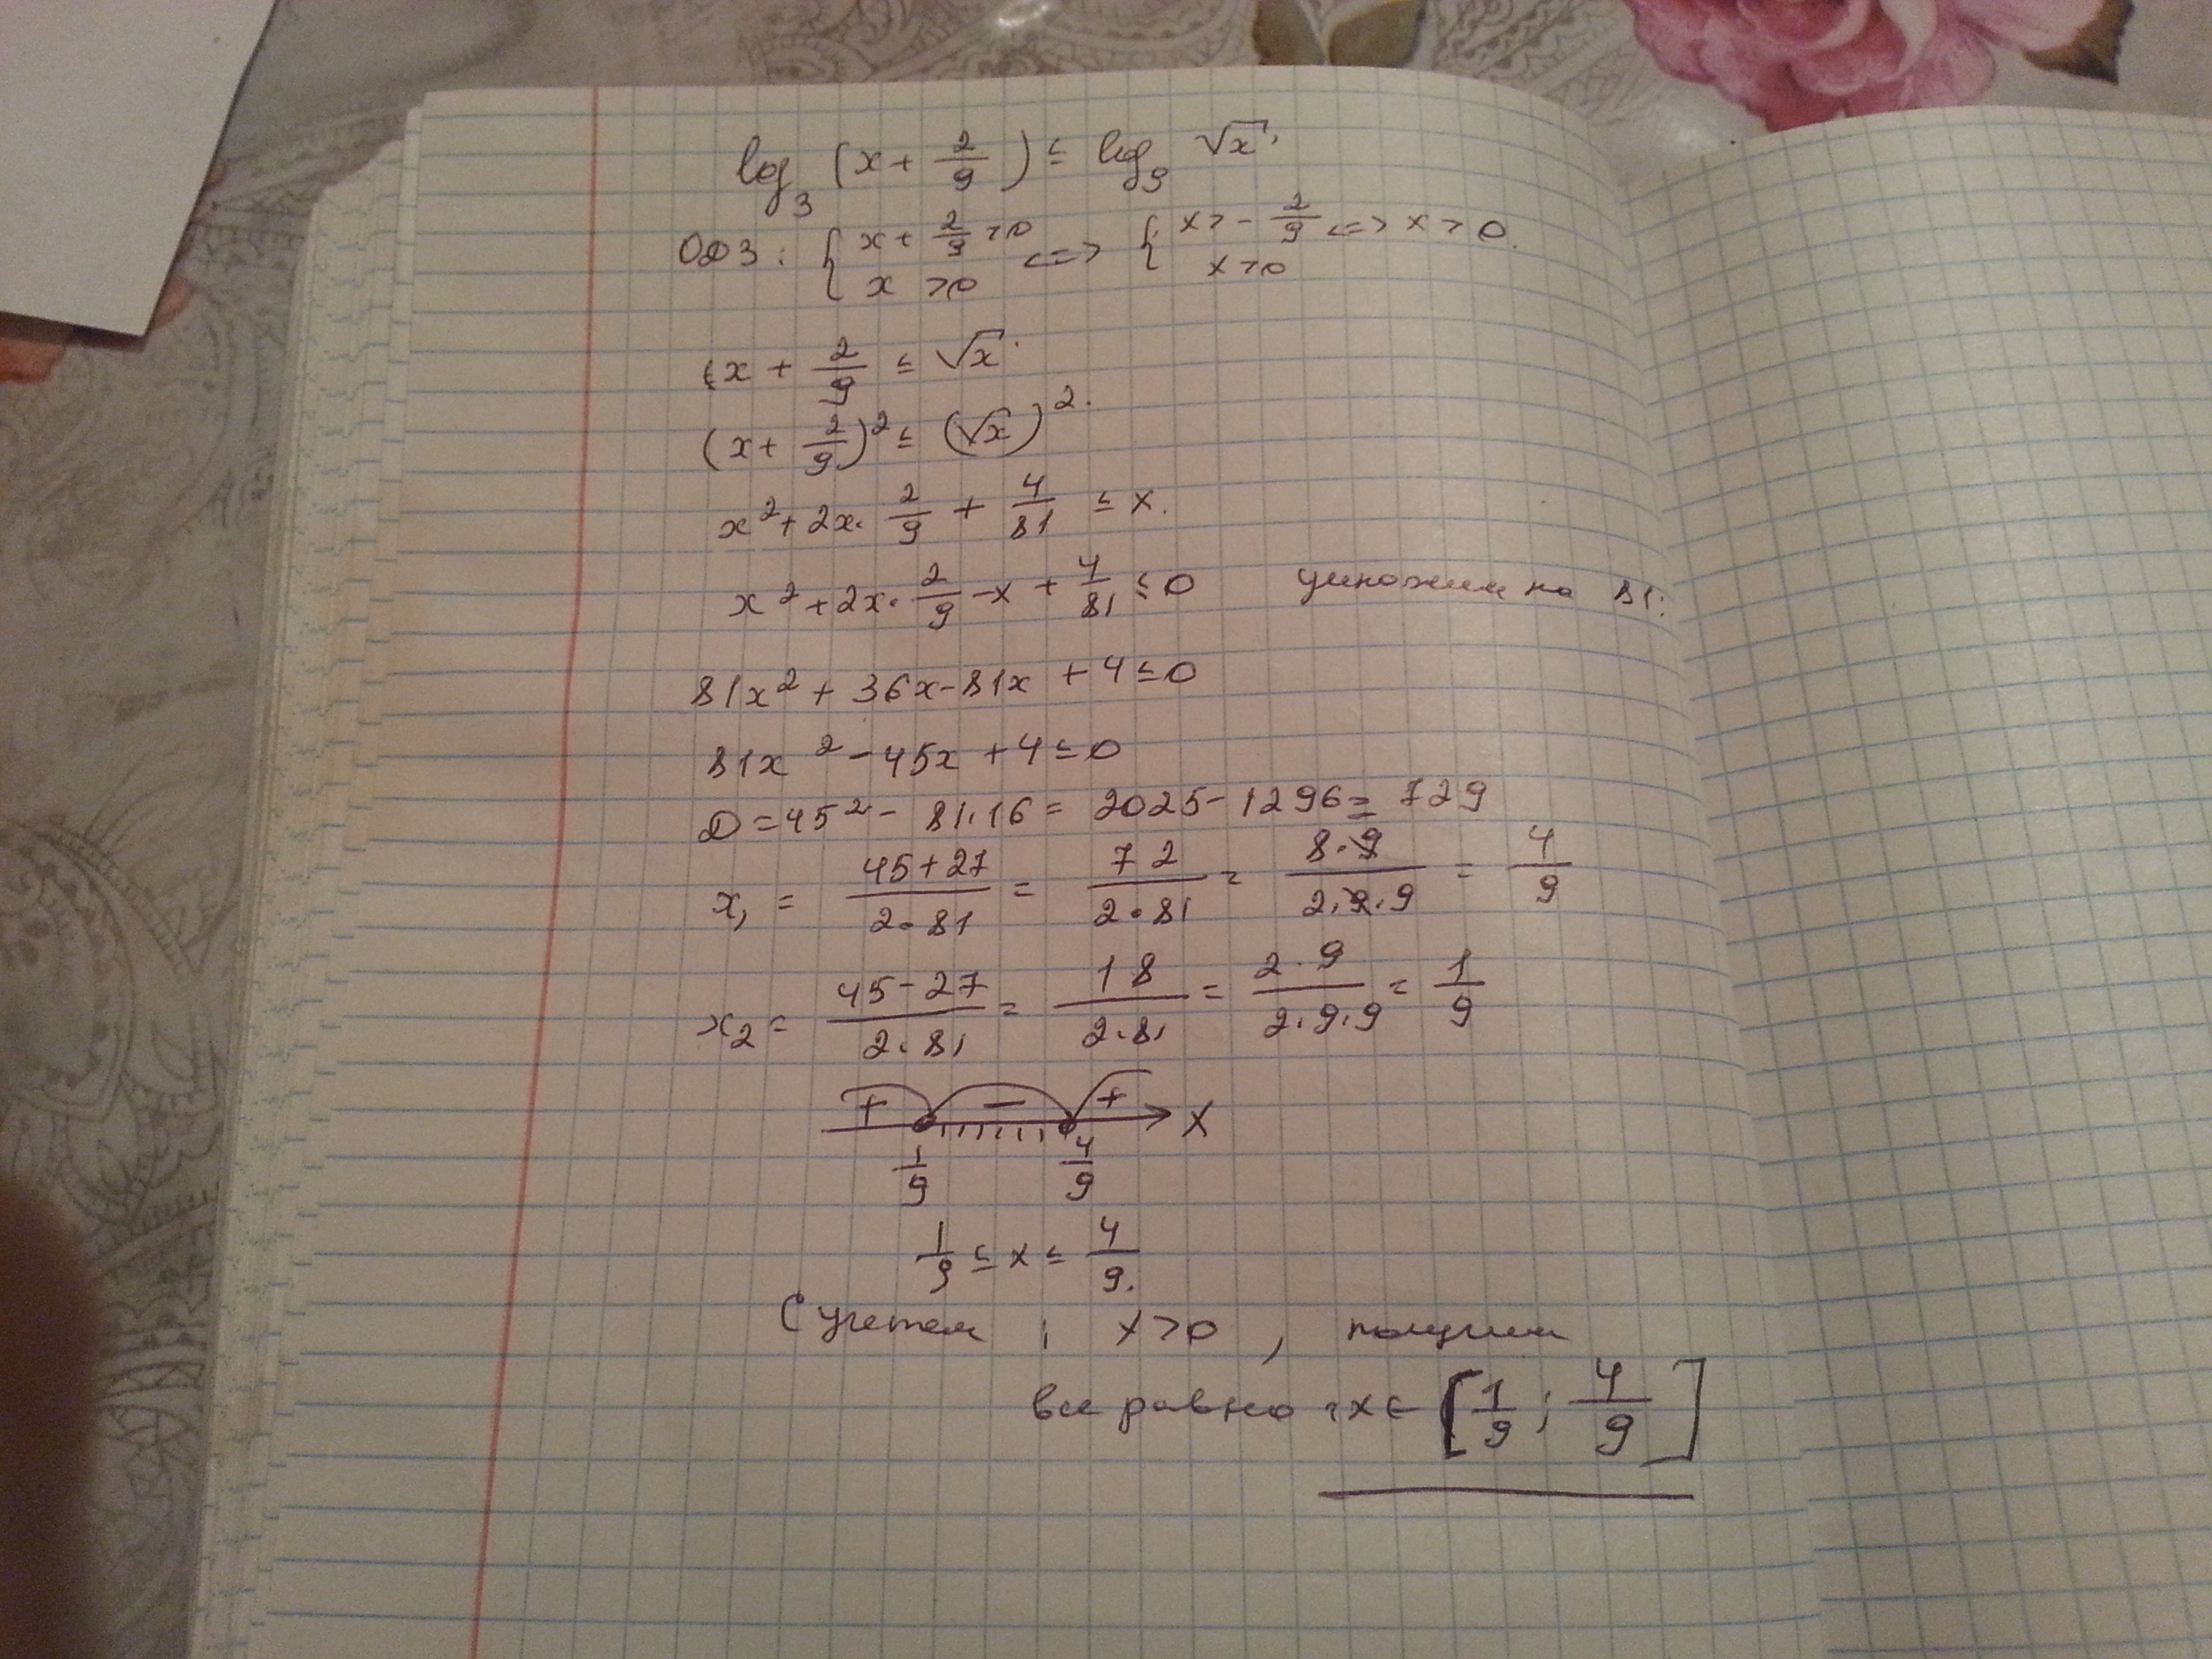 log₃ (x + 2/9) ≤ log₉ √x
ОДЗ: { x + 2/9 > 0, x > 0 <=> { x > - 2/9, x > 0 <=> x > 0.
x + 2/9 ≤ √x
(x + 2/9)² ≤ (√x)².
x² + 2x · 2/9 + 4/81 ≤ x.
x² + 2x · 2/9 - x + 4/81 ≤ 0 умножим на 81:
81x² + 36x - 81x + 4 ≤ 0
81x² - 45x + 4 ≤ 0
D = 45² - 81·16 = 2025 - 1296 = 729
x₁ = (45+27)/(2·81) = 72/(2·81) = (8·9)/(2·9·9) = 4/9
x₂ = (45-27)/(2·81) = 18/(2·81) = (2·9)/(2·9·9) = 1/9
+ − + X
1/9 4/9
1/9 ≤ x ≤ 4/9.
С учетом : x > 0 , получим
все равно : x ∈ [1/9 ; 4/9]